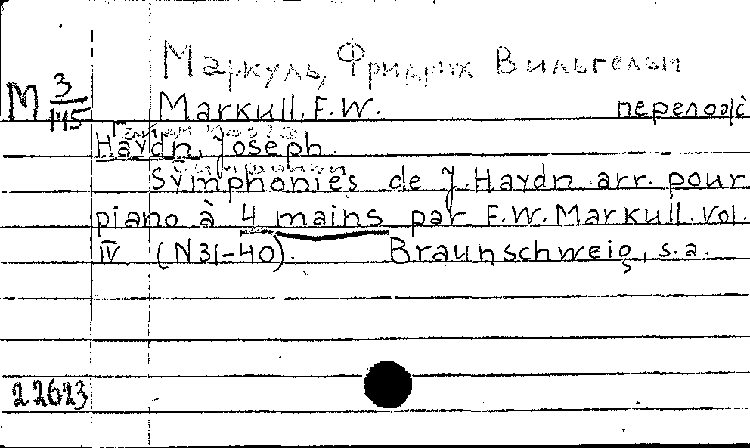 Маркуль, Фридрих Вильгельм
M 3/145
Markull, F.W. перелож
Haydn, Joseph.
Symphonies de J. Haydn arr. pour
piano à 4 mains par F.W. Markull. Vol.
IV (N31-40). Braunschweig, s.a.
22623